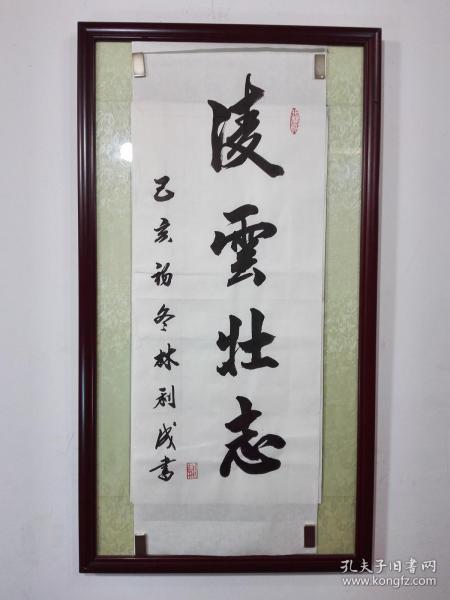 凌雲壯志
己亥初冬林利成書
孔夫子旧书网
www.kongfz.com